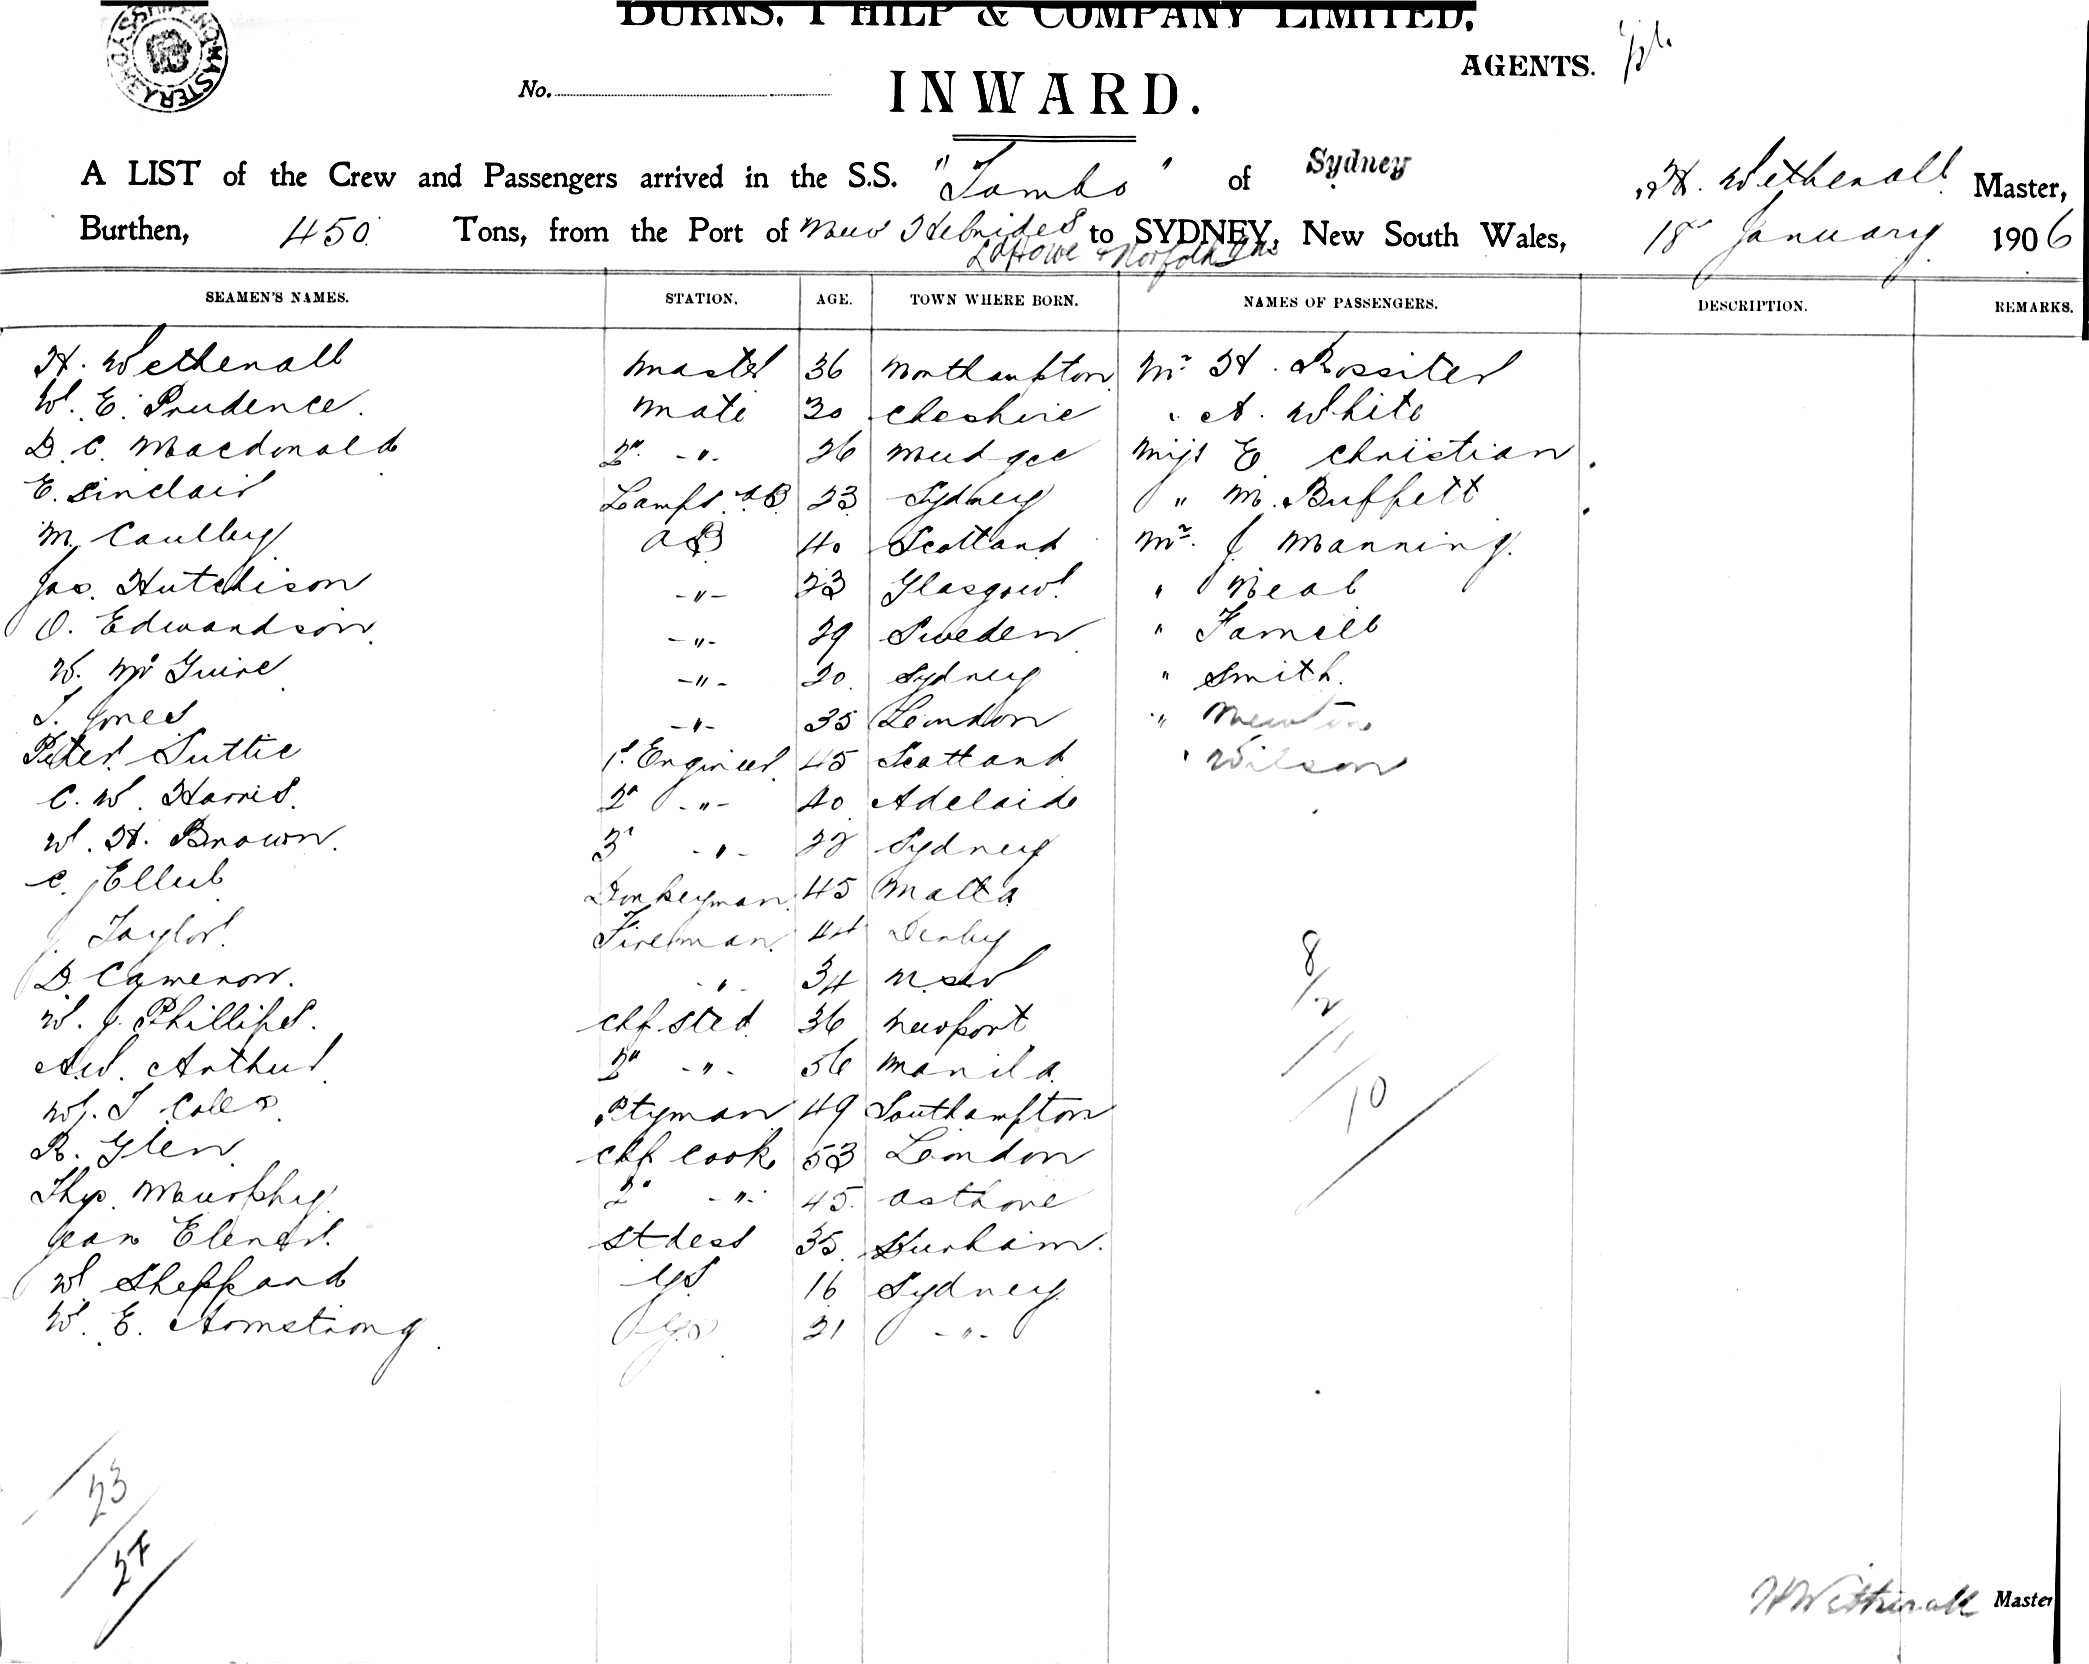 BURNS, PHILP & COMPANY LIMITED,
SHIPPING MASTER SYDNEY
AGENTS.
No.
INWARD.
A LIST of the Crew and Passengers arrived in the S.S. "Tambo" of Sydney H. Wetherall Master,
Burthen, 450 Tons, from the Port of New Hebrides to SYDNEY, New South Wales, 18 January 1906
Ld Howe & Norfolk Ins
SEAMEN'S NAMES. STATION. AGE. TOWN WHERE BORN. NAMES OF PASSENGERS. DESCRIPTION. REMARKS.
H. Wetherall Master 36 Northampton Mr H. Rossiter
W. E. Prudence. Mate 30 Cheshire " A. White
D. C. Macdonald 2nd -"- 26 Mudgee Miss E Christian
E. Sinclair Lamps AB 23 Sydney " M. Buffett
M. Caulley AB 40 Scotland Mr. J. Manning.
Jas. Hutchison -"- 23 Glasgow " Neal
O. Edwardson -"- 29 Sweden "
W. Mc Guire -"- 20 Sydney " Smith.
T. Jones -"- 35 London " Newton
Peter Suttie 1st Engineer 45 Scotland " Wilson
C. W. Harris. 2nd -"- 40 Adelaide
W. H. Brown. 3rd -"- 22 Sydney
C. Ellul Donkeyman 45 Malta
J. Taylor. Fireman 44 Derby
D Cameron. -"- 34 NSW
W. J. Phillips. Chf Std. 36 Newport
A.W. Arthur 2nd -"- 56 Manila
W. T Coles Ptyman 49 Southampton
R. Glen Chf Cook 53 London
Thos. Murphy 2nd -"- 45 Asthore
Jean Stdess 35 Durham.
W Sheppard GS 16 Sydney
W. E. Armstrong GS 21 -"-
8
/2
10
23
24
H Wetherall Master